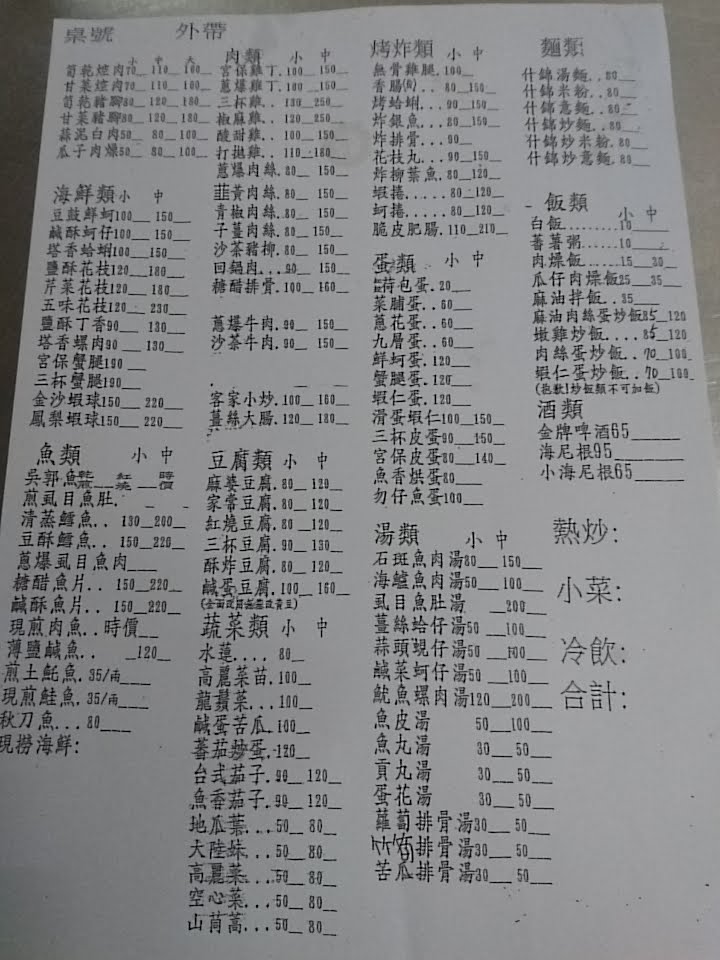 桌號 外帶
小 中 大
筍乾焢肉70 110 160
甘菜焢肉70 110 160
筍乾豬腳80 120 180
甘菜豬腳80 120 180
蒜泥白肉50 80 100
瓜子肉燥50 80 100
海鮮類 小 中
豆鼓鮮蚵100 150
鹹酥蚵仔100 150
塔香蛤蜊100 150
鹽酥花枝120 180
芹菜花枝120 180
五味花枝120 230
鹽酥丁香90 130
塔香螺肉90 130
宮保蟹腿190
三杯蟹腿190
金沙蝦球150 220
鳳梨蝦球150 220
魚類 小 中
吳郭魚 紅燒 時價
煎虱目魚肚.
清蒸鱈魚.. 130 200
豆酥鱈魚.. 150 220
蔥爆虱目魚肉
糖醋魚片.. 150 220
鹹酥魚片.. 150 220
現煎肉魚..時價
薄鹽鹹魚.. 120
煎土魠魚.35/兩
現煎鮭魚.35/兩
秋刀魚...80
現撈海鮮:
肉類 小 中
宮保雞丁.100 150
蔥爆雞丁.100 150
三杯雞..130 250
椒麻雞..120 250
酸甜雞..100 150
打拋雞..110 160
蔥爆肉絲.80 150
韮黃肉絲.80 150
青椒肉絲.80 150
子薑肉絲.80 150
沙茶豬柳.80 150
回鍋肉...90 150
糖醋排骨.100 160
蔥爆牛肉.90 150
沙茶牛肉.90 150
客家小炒.100 160
薑絲大腸.120 180
豆腐類 小 中
麻婆豆腐.80 120
家常豆腐.80 120
紅燒豆腐.80 120
三杯豆腐.90 130
酥炸豆腐.80 120
鹹蛋豆腐.100 160
蔬菜類 小 中
水蓮.... 80
高麗菜苗.100
龍鬚菜...100
鹹蛋苦瓜.100
蕃茄炒蛋.120
台式茄子.90 120
魚香茄子.90 120
地瓜葉...50 80
大陸妹...50 80
高麗菜...50 80
空心菜...50 80
山茼蒿...50 80
烤炸類 小 中
無骨雞腿.100
香腸(份)..80 150
烤蛤蜊...90 150
炸銀魚...80 150
炸排骨...90
花枝丸...90 150
炸柳葉魚.80 120
蝦捲.....80 120
蚵捲.....80 120
脆皮肥腸.110 210
蛋類 小 中
荷包蛋.20
菜脯蛋..60
蔥花蛋..60
九層蛋..60
鮮蚵蛋.120
蟹腿蛋.120
蝦仁蛋.120
滑蛋蝦仁100 150
三杯皮蛋90 150
宮保皮蛋80 140
魚香烘蛋80
勿仔魚蛋100
湯類 小 中
石斑魚肉湯80 150
海鱸魚肉湯50 100
虱目魚肚湯 200
薑絲蛤仔湯50 100
蒜頭蜆仔湯50 100
鹹菜蚵仔湯50 100
魷魚螺肉湯120 200
魚皮湯 50 100
魚丸湯 30 50
貢丸湯 30 50
蛋花湯 30 50
蘿蔔排骨湯30 50
竹筍排骨湯30 50
苦瓜排骨湯30 50
麵類
什錦湯麵..80
什錦米粉.80
什錦意麵.80
什錦炒麵.80
什錦炒米粉.80
什錦炒意麵.80
飯類 小 中
白飯.......10
蕃薯粥.....10
肉燥飯.....15 30
瓜仔肉燥飯25 35
麻油拌飯..35
麻油肉絲蛋炒飯85 120
墩雞炒飯....85 120
肉絲蛋炒飯..70 100
蝦仁蛋炒飯..70 100
(抱歉!炒飯類不可加飯)
酒類
金牌啤酒65
海尼根95
小海尼根65
熱炒:
小菜:
冷飲:
合計: